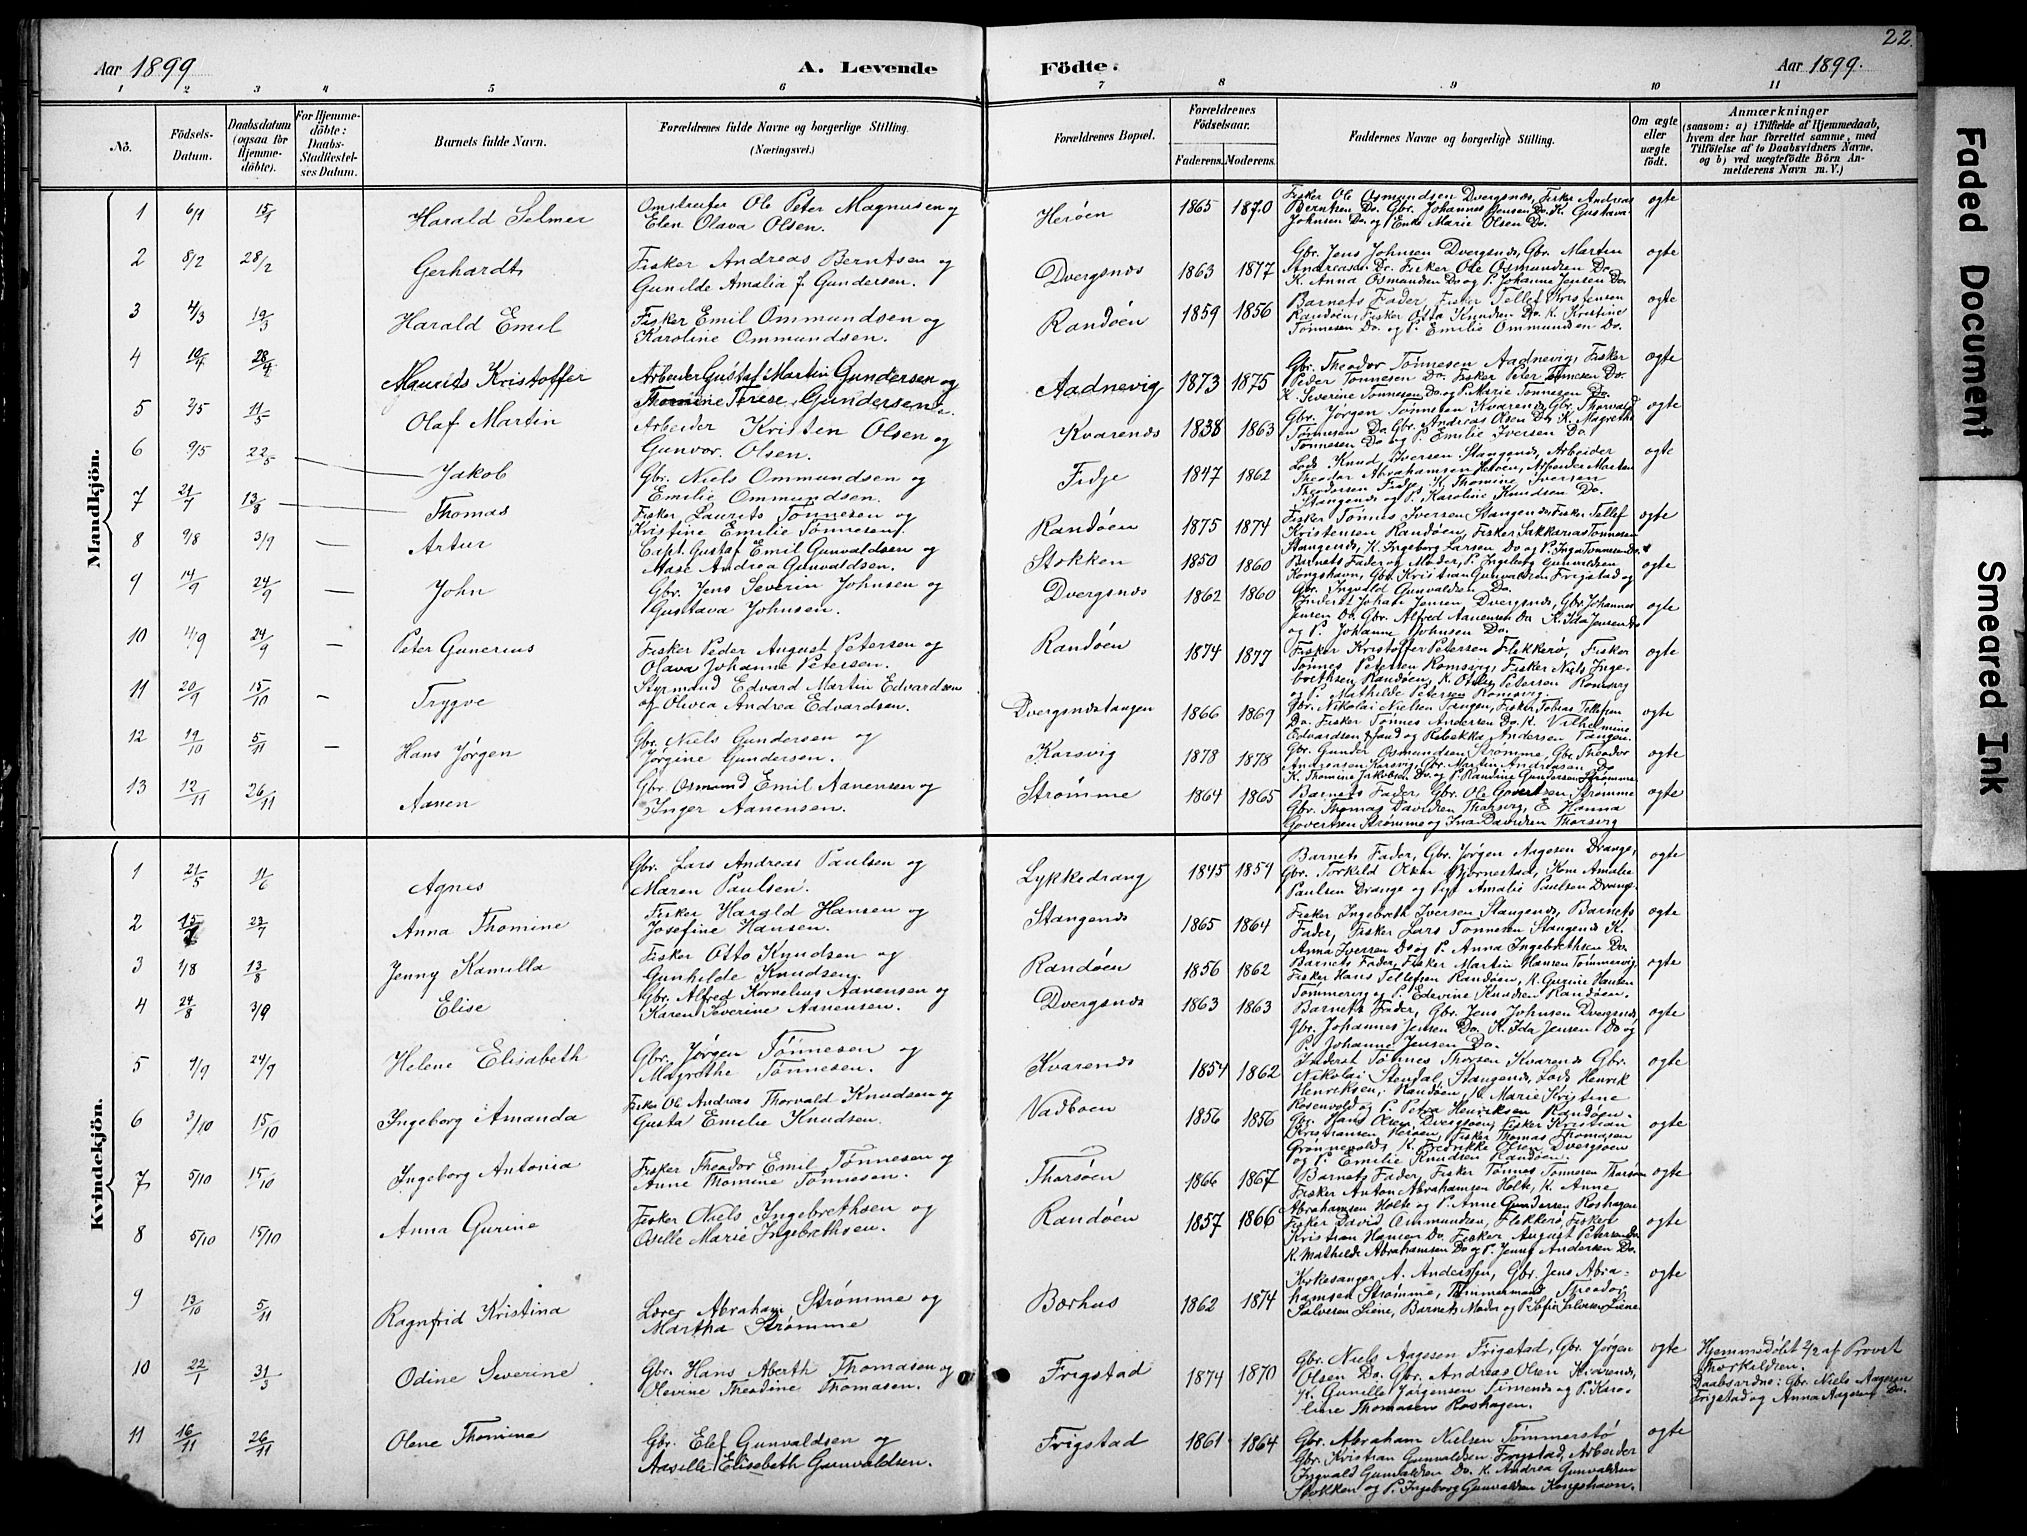 22.
Aar 1899
A. Levende
Födte.
Aar 1899.
1 2 3 4 5 6 7 8 9 10 11
No.
Födsels-Datum.
Daabsdatum (ogsaa for Hjemme-döbte).
For Hjemme-döbte: Daabs-Stadfæstel-ses Datum.
Barnets fulde Navn.
Forældrenes fulde Navne og borgerlige Stilling.
(Næringsvei.)
Forældrenes Bopæl.
Forældrenes Födselsaar.
Faderens. Moderens.
Faddernes Navne og borgerlige Stilling.
Om ægte eller uægte födt.
Anmærkninger
(saasom: a) i Tilfælde af Hjemmedaab,
hvem der har forrettet samme, med
Tilföielse af to Daabsvidners Navne,
og b) ved uægtefödte Börn An-
melderens Navn m. V.)
Mandkjön.
1 6/1 15/1 Harald Selmer
Ole Peter Magnusen og
Elen Olava Olsen.
Herøen 1865 1870
Fisker Ole Osmundsen Dvergsnæs, Fisker Andreas
Berntsen Do. Gbr. Johannes Jensen Do. K. Gustava
Johnsen Do og Enke Marie Olsen Do.
ægte
2 8/2 28/2 Gerhardt
Fisker Andreas Berntsen og
Gunilde Amalia f. Gundersen.
Dvergsnæs 1863 1877
Gbr. Jens Johnsen Dvergsnæs, Gbr. Martin
Andreasen Do. Fisker Ole Osmundsen Do.
K. Anna Osmundsen Do og P. Johanne Jensen Do.
ægte
3 4/3 19/3 Harald Emil
Fisker Emil Ommundsen og
Karoline Ommundsen.
Randøen 1859 1856
Barnets Fader, Fisker Tellef Kristensen
Randøen, Fisker Otto Knudsen Do. K. Kristine
Tønnesen Do. og P. Emilie Ommundsen Do.
ægte
4 10/4 28/4 Maurits Kristoffer
Arbeider Gustaf Martin Gundersen og
Thomine Terese Gundersen.
Aadnevig 1873 1875
Gbr. Theodor Tønnesen Aadnevig, Fisker
Peder Tønnesen Do. Fisker Peter Tønnesen Do.
K. Severine Tønnesen Do og P. Marie Tønnesen Do.
ægte
5 2/5 11/5 Olaf Martin
Arbeider Kristen Olsen og
Gunvor. Olsen.
Kvarenæs 1838 1863
Gbr. Jørgen Tønnesen Kvarenæs, Gbr. Thorvald
Tønnesen Do. Gbr. Andreas Olsen Do, K. Magrethe
Tønnesen Do og P. Emilie Iversen Do.
ægte
6 9/5 22/5 Jakob
Gbr. Niels Ommundsen og
Emilie Ommundsen.
Fidje 1847 1862
Lods Knud Iversen Stangenæs, Arbeider
Theodor Abrahamsen Herøen, Arbeider Martin
Theodorsen Fidje, K. Thomine Iversen
Stangenæs og P. Karoline Knudsen Do.
ægte
7 21/7 13/8 Thomas
Fisker Laurits Tønnesen og
Kristine Emilie Tønnesen
Randøen 1875 1874
Fisker Tønnes Iversen Stangenæs, Fisker Tellef
Kristensen Randøen, Fisker Sakkarias Tønnesen
Stangenæs, K. Ingeborg Larsen Do og P. Inga Tønnesen Do.
ægte
8 9/8 3/9 — Artur
Capt. Gustaf Emil Gunvaldsen og
Andrea Gunvaldsen.
Stokken 1850 1860
Barnets Fader og Moder, P. Ingeborg Gunvaldsen
Kongshavn, Gbr. Kristian Gunvaldsen Frigstad og
Gbr. Ingvald Gunvaldsen Do.
ægte
9 14/9 24/9 — John
Gbr. Jens Severin Johnsen og
Gustava Johnsen.
Dvergsnæs 1862 1860
Inderst Johan Jensen Dvergsnæs, Gbr. Johannes
Jensen Do. Gbr. Alfred Aanensen Do K. Ida Jensen Do
og P. Johanne Johnsen Do.
ægte
10 4/9 24/9 — Peter Gunerius
Fisker Peder August Petersen og
Olava Johanne Petersen.
Randøen 1874 1877
Fisker Kristoffer Petersen Flekkerø, Fisker
Tønnes Petersen Romsvig, Fisker Niels Inge-
brethsen Randøen, K. Petersen Romsvig
og P. Mathilde Petersen Romsvig.
ægte
11 20/9 15/10 — Trygve
Styrmand Edvard Martin Edvardsen
og Olivia Andrea Edvardsen.
Dvergsnæstangen 1866 1869
Gbr. Nikolai Nielsen Tangen, Fisker Tobias Tellefsen
Do. Fisker Tønnes Andersen Do. K. Vilhelmine
Edvardsen og Rebekka Andersen Tangen.
ægte
12 19/10 5/11 — Hans Jørgen
Gbr. Niels Gundersen og
Jørgine Gundersen.
Korsvig 1878 1878
Gbr. Gunder Osmundsen Strømme, Gbr. Theodor
Andreasen Korsvig, Gbr. Martin Andreasen Do
K. Thomine Jakobsen Do. og P. Randine Gundersen Strømme
ægte
13 12/11 26/11 Aanen
Gbr Osmund Emil Aanensen og
Inger Aanensen.
Strømme 1864 1865
Barnets Fader, Gbr. Ole Govertsen Strømme
Gbr. Thomas Davidsen Thorsvig, E Hanna
Govertsen Strømme og Ina Davidsen Thorsvig
ægte
Kvindekjön.
1 21/5 11/6 Agnes
Gbr. Lars Andreas Paulsen og
Maren Paulsen.
Lykkedrang 1845 1854
Barnets Fader, Gbr. Jørgen Aagesen Drange,
Gbr. Torkild Olsen Bjørnestad, Kone Amalie
Paulsen Drange og Amalie Paulsen Drange.
ægte
2 15/7 23/7 Anna Thomine
Fisker Harald Hansen og
Josefine Hansen.
Stangenæs 1865 1864
Fisker Ingebreth Iversen Stangenæs, Barnets
Fader, Fisker Lars Tønnesen Stangenæs K.
Anna Iversen Do og P. Anna Ingebrethsen Do.
ægte
3 1/8 13/8 Jenny Kamilla
Fisker Otto Knudsen og
Gunhilde Knudsen.
Randøen 1856 1862
Barnets Fader, Fisker Martin Hansen Tømmervig,
Fisker Hans Tellefsen Randøen, K. Gurine Hansen
Tømmervig, P. Edevine Knudsen Randøen.
ægte
4 24/8 3/9 Elise
Gbr. Alfred Kornelius Aanensen og
Karen Severine Aanensen.
Dvergsnæs 1863 1863
Barnets Fader, Gbr. Jens Johnsen Dvergsnæs
Gbr. Johannes Jensen Do. K. Ida Jensen Do og
P. Johanne Jensen Do.
ægte
5 9/9 24/9 Helene Elisabeth
Gbr. Jørgen Tønnesen og
Magrethe Tønnesen.
Kvarenæs 1854 1862
Inderst Tønnes Thorsen Kvarenæs Gbr.
Nikolai Stendal, Stangenæs, Lods Henrik
Henriksen, Randøen, K. Marie Kristine
Rosenvold og P. Petra Henriksen Randøen.
ægte
6 3/10 15/10 Ingeborg Amanda
Fisker Ole Andreas Thorvald Knudsen og
Gusta Emilie Knudsen.
Vadboen 1856 1856
Gbr. Hans Olsen Dvergsøen, Fisker Kristian
Kristiansen Herøen, Fisker Thomas Thomasen
Grønnevold, K. Fredrikke Olsen Dvergsøen
og P. Emilie Knudsen Randøen.
ægte
7 5/10 15/10 Ingeborg Antonia
Fisker Theodor Emil Tønnesen og
Anne Thomine Tønnesen.
Thorsøen 1866 1867
Barnets Fader, Fisker Tønnes Tønnesen Thorsøen
Fisker Anton Abrahamsen Holte, K. Anne
Abrahamsen Holte og P. Anne Gundersen Roshagen
ægte
8 5/10 15/10 Anna Gurine
Fisker Niels Ingebrethsen og
Oselle Marie Ingebrethsen.
Randøen 1857 1866
Fisker David Ommundsen, Flekkerø, Fisker
Kristian Hansen Do. Fisker August Petersen Do
K. Mathilde Abrahamsen Do og P. Jenny Andersen Do.
ægte
9 13/10 5/11 Ragnfrid Kristina
Lærer Abraham Strømme og
Martha Strømme
Bærhus 1862 1874
Kirkesanger A. Anderssen, Gbr. Jens Abra-
hamsen Strømme, Tømmermand Theodor
Salvesen Liene, Barnets Moder og P. Sofie Salvesen Liene
ægte
10 22/1 31/3 Odine Severine
Gbr. Hans Aberth Thomasen og
Olevine Theodine Thomasen.
Frigstad 1874 1870
Gbr. Niels Aagesen Frigstad, Gbr. Jørgen
Olsen Do. Gbr. Andreas Olsen Kvarenæs,
K. Gunille Jørgensen Timenæs og P. Karo-
line Thomasen Roshagen.
ægte
Hjemmedøbt 2/2 af Provst
Thorkildsen.
Daabsvidne: Gbr. Niels Aagesen
Frigstad og Anna Aagesen Do.
11 16/11 26/11 Olene Thomine
Gbr. Elef Gunvaldsen og
Aasille Elisebeth Gunvaldsen.
Frigstad 1861 1864
Gbr. Abraham Nielsen Tømmerstø
Gbr. Kristian Gunvaldsen Frigstad, Arbeider
Ingvald Gunvaldsen Do. K. Andrea Gunvaldsen
Stokken og P. Ingeborg Gunvaldsen Kongshavn.
ægte
Faded Document
Smeared Ink